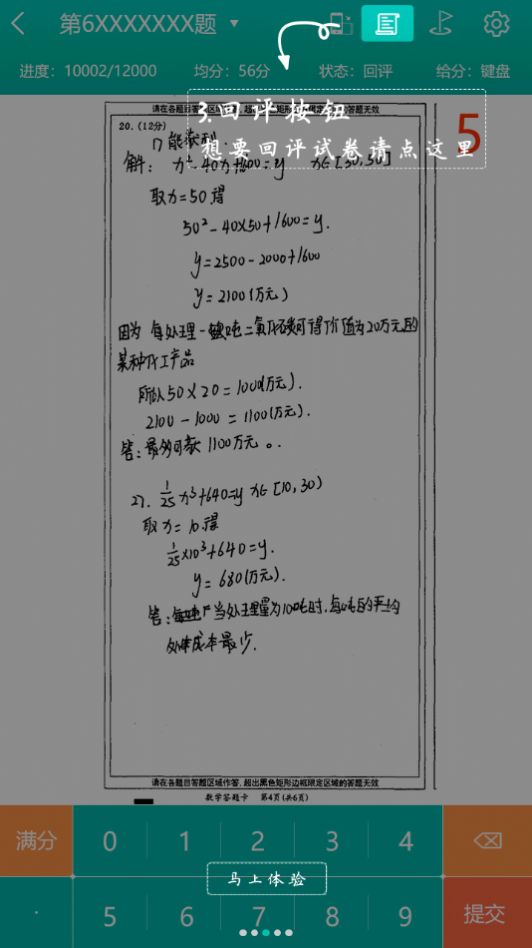 第6XXXXXXX题
进度：10002/12000 均分：56分 状态：回评 给分：键盘
3.回评按钮
想要回评试卷请点这里
5
20. (12分)
1) 能获利.
解： x²-40x+1600=y x∈[30,50]
取x=50得
50²-40×50+1600=y.
y=2500-2000+1600
y=2100(万元)
因为 每处理一吨二氧化碳可得价值为20万元的
某种化工产品
所以50×20=1000(万元).
2100-1000=1100(万元).
答：最多可款1100万元。
1/25 x³+640=y x∈[10,30)
取x=10得
1/25×10³+640=y.
y=680(万元).
答： 当处理量为10吨时，每吨的平均
处理成本最少.
请在各题目答题区域作答，超出黑色矩形边框限定区域的答题无效
数学答题卡 第4页(共6页)
满分 0 1 2 3 4
马上体验
. 5 6 7 8 9 提交